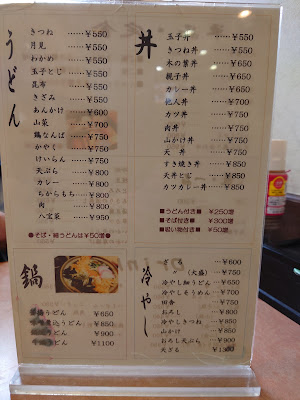 うどん
きつね……¥550
月見………¥550
わかめ……¥550
玉子とじ…¥550
昆布………¥550
きざみ……¥550
あんかけ…¥600
山菜………¥700
鶏なんば…¥750
かやく……¥750
けいらん…¥750
天ぷら……¥800
カレー……¥800
ちからもち…¥800
肉…………¥800
八宝菜……¥950
●そば・細うどんは¥50増●
丼
玉子丼……¥550
きつね丼…¥550
木の葉丼…¥650
親子丼……¥650
カレー丼…¥650
他人丼……¥700
カツ丼……¥750
肉丼………¥750
山かけ丼…¥750
天 丼……¥750
すき焼き丼…¥850
天丼とじ…¥850
カツカレー丼…¥850
■うどん付き■ ¥250増
■そば付き■ ¥300増
■吸い物付き■ ¥50増
鍋
うどん ¥650
うどん ¥850
うどん ¥900
うどん ¥1100
冷やし
ざる
(大盛) ¥750
冷やし細うどん…¥650
冷やしそうめん…¥700
田舎…………¥700
おろし………¥800
冷やしきつね…¥800
山かけ………¥850
おろし天ぷら…¥900
天ざる